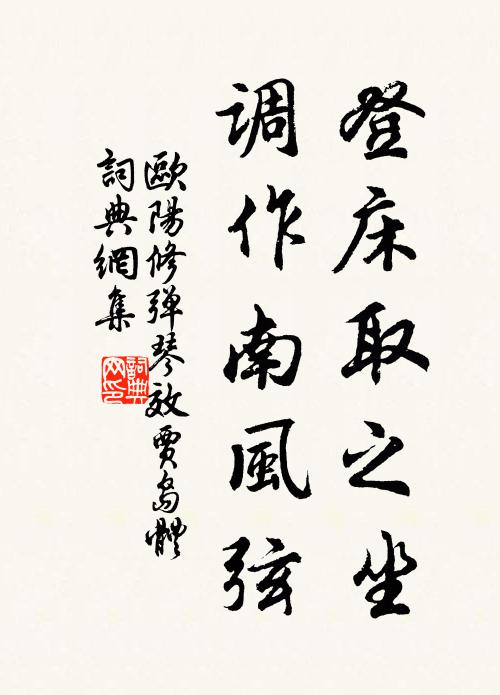 登床取之坐
调作南風弦
歐陽修弹琴效賈島體
詞典網集
詞典
网印